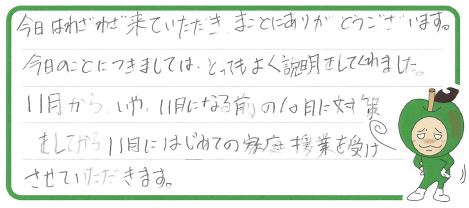 今日はわざわざ来ていただき まことにありがとうございます。
今日のことにつきましては、とってもよく説明をしてくれました。
11月から、いや、11月になる前の10月に対策
をしてから11月にはじめての家庭授業を受け
させていただきます。